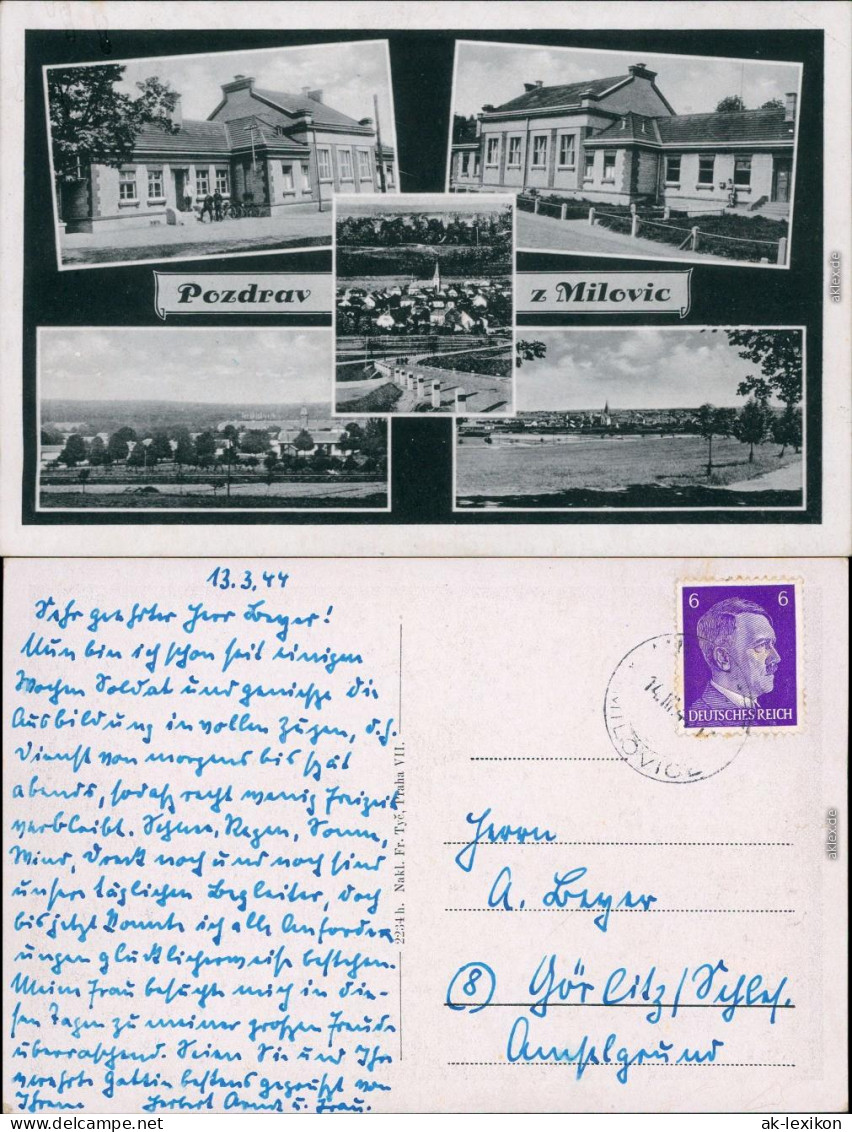 Pozdrav z Milovic
13.3.44
Sehr geehrter Herr Beyer!
Nun bin ich schon seit einigen
Wochen Soldat und genieße die
Ausbildung in vollen Zügen, d.h.
Dienst von morgens bis spät
abends, sodaß recht wenig Freizeit
verbleibt. Schnee, Regen, Sonne,
Wind, Dreck noch und noch sind
unsere täglichen Begleiter, doch
bis jetzt konnte ich alle Anforder-
ungen glücklicherweise bestehen.
Meine Frau besuchte mich in die-
sen Tagen zu meiner großen Freude
überraschend. Seien Sie und Ihre
verehrte Gattin bestens gegrüßt von
Ihrem Herbert Arndt u. Frau.
2234h. Nakl. Fr. Tyč, Praha VII.
6 6
DEUTSCHES REICH
14.III.4
MILOVICE
Herrn
A. Beyer
(8) Görlitz/Schles.
Amselgrund
aklex.de
aklex.de
ak-lexikon